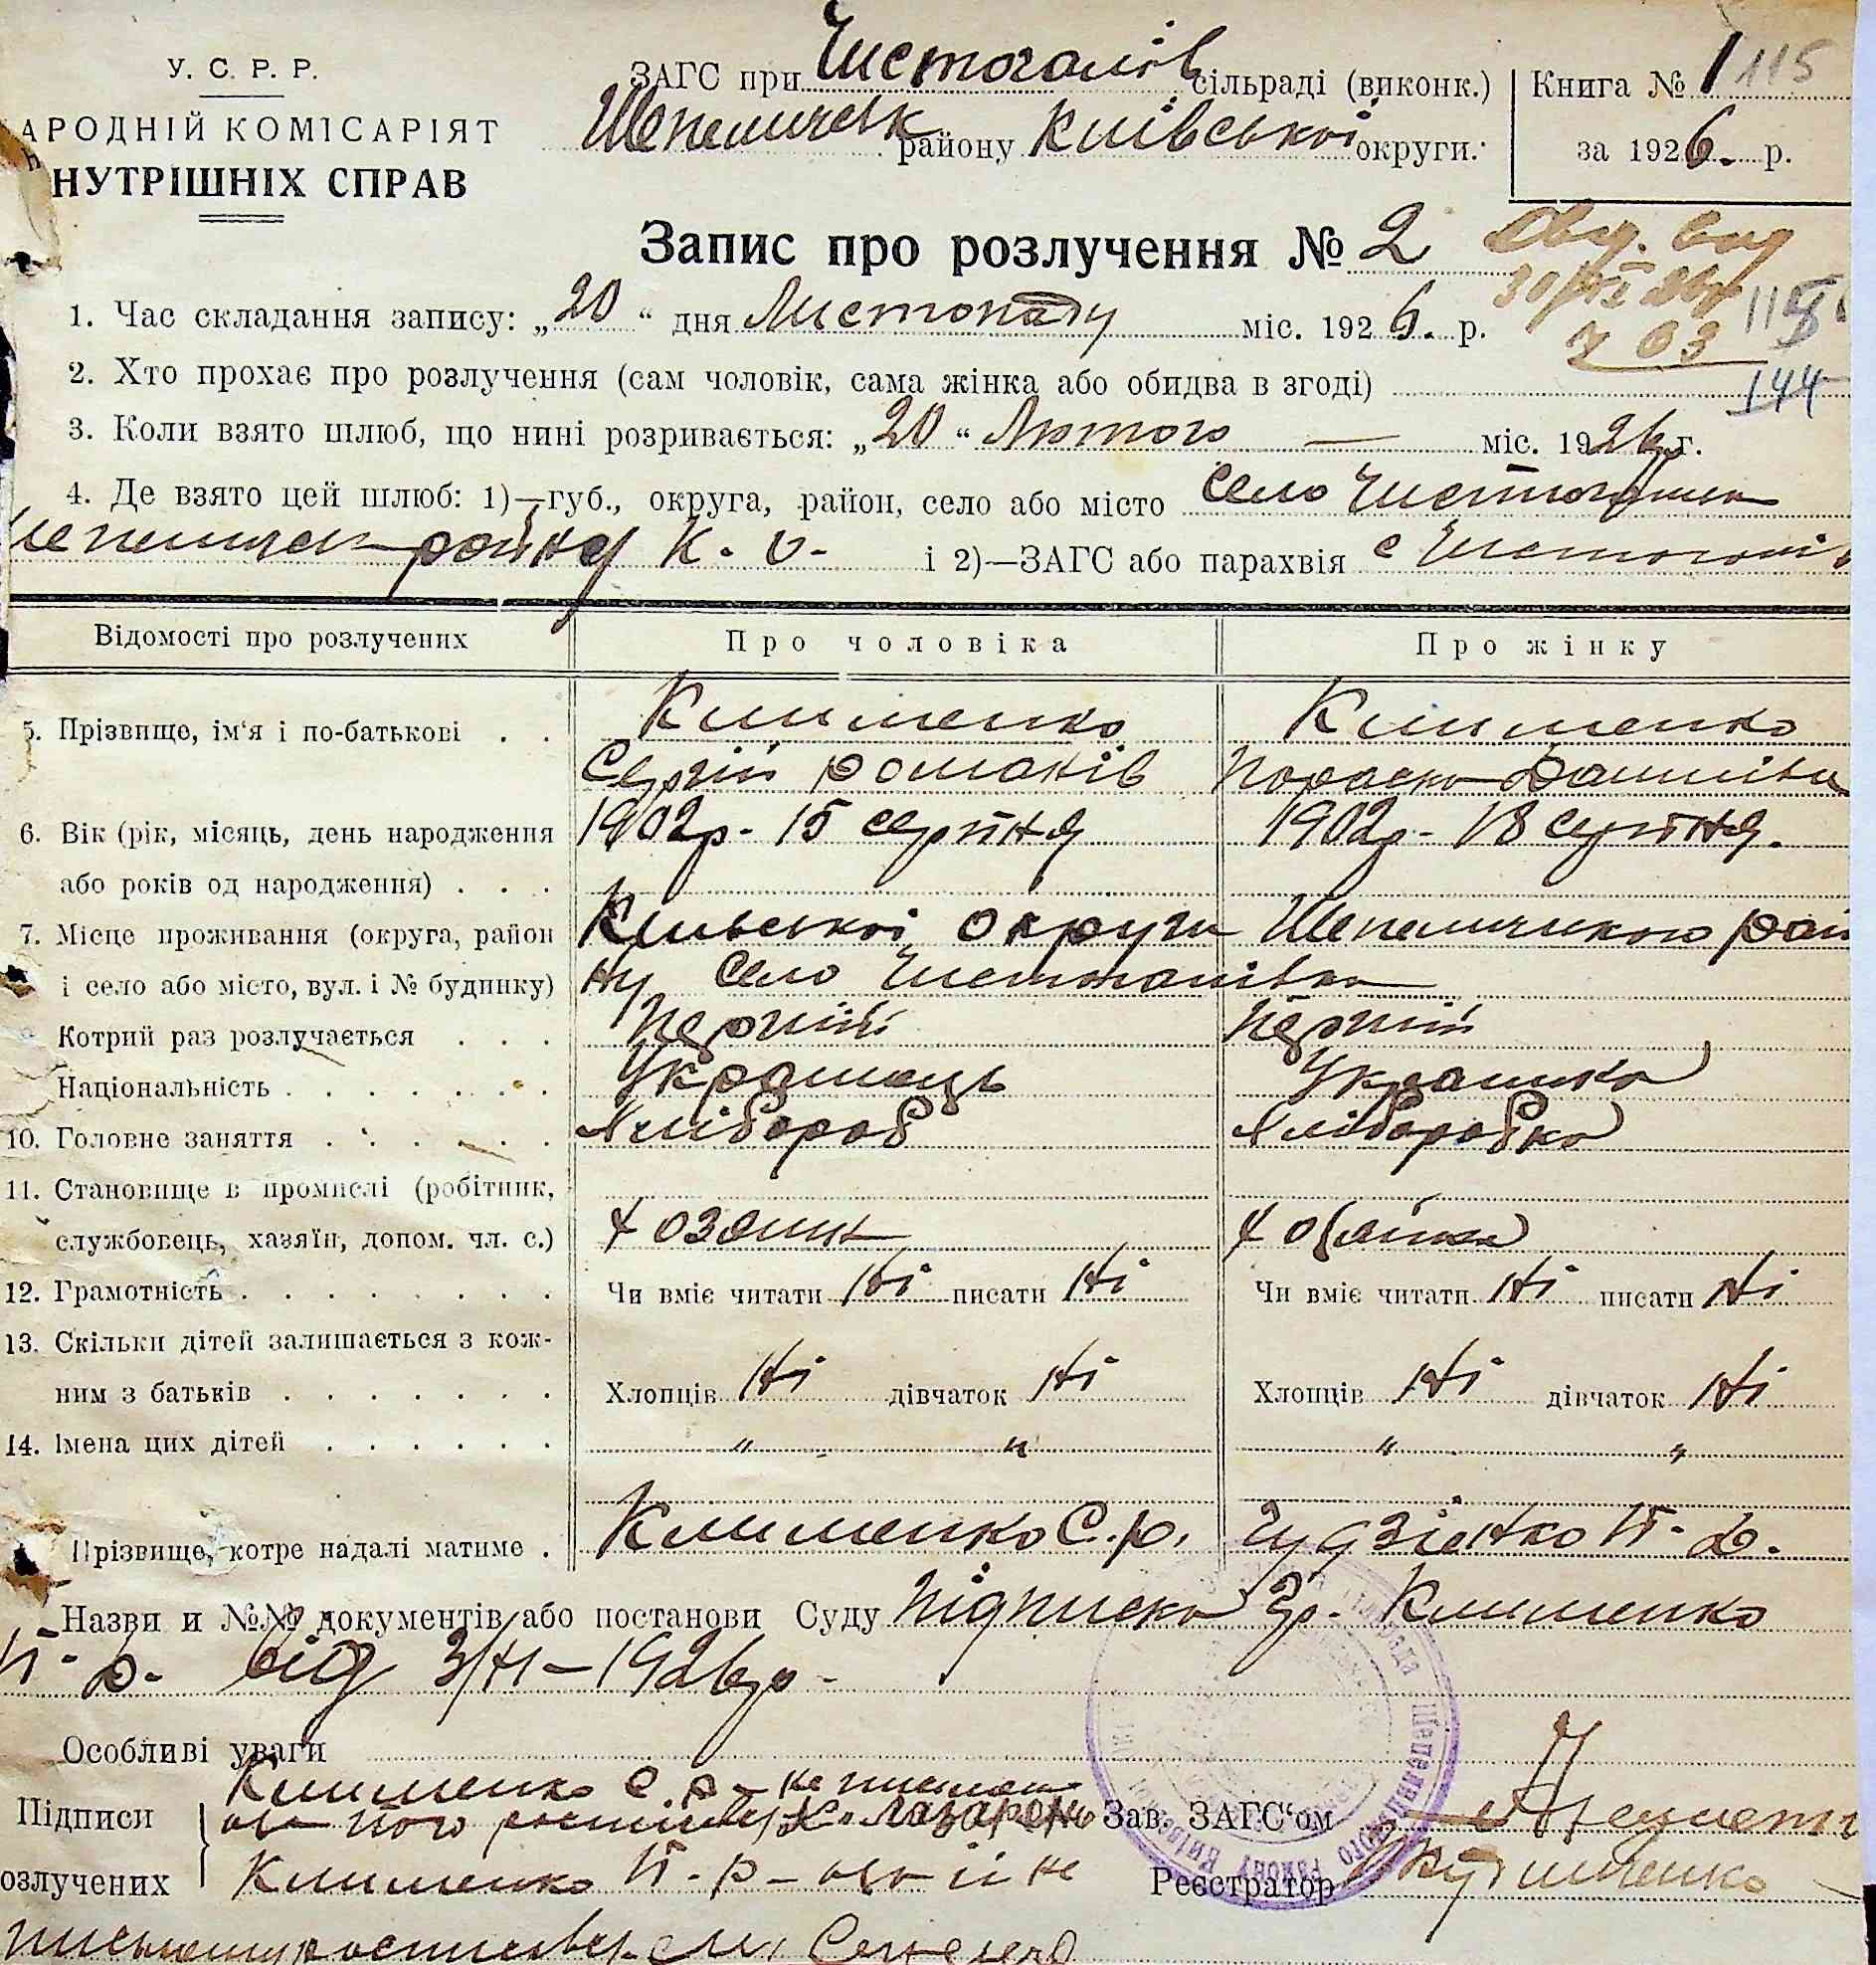 У. С. Р. Р.
АРОДНІЙ КОМІСАРІЯТ
НУТРІШНІХ СПРАВ
ЗАГС при Чистогалів сільраді (виконк.)
Шепелическ району Київської округи.
Книга № 1 115
за 1926. р.
Запис про розлучення № 2
1. Час складання запису: „20“ дня Листопаду міс. 1926. р.
7 63
144
2. Хто прохає про розлучення (сам чоловік, сама жінка або обидва в згоді)
3. Коли взято шлюб, що нині розривається: „20“ Лютого — міс. 1926 г.
4. Де взято цей шлюб: 1)—губ., округа, район, село або місто Село
району К. О. і 2)—ЗАГС або парахвія с
Відомості про розлучених Про чоловіка Про жінку
5. Прізвище, ім‘я і по-батькові . . Клименко Клименко
Сергій Романів Параска
6. Вік (рік, місяць, день народження 1902р. 15 серпня 1902р. 18 серпня.
або років од народження) . . .
7. Місце проживання (округа, район Київської округи Шепелицкого рай
і село або місто, вул. і № будинку) ну Село Чистогалівка
Котрий раз розлучається . . . Перший Перший
Національність . . . . . . Українець Українка
10. Головне заняття . . . . . Хлібороб Хлібаробка
11. Становище в промислі (робітник,
службовець, хазяїн, допом. чл. с.) Хозяин Хозяйка
12. Грамотність . . . . . . . Чи вміє читати Ні писати Ні Чи вміє читати Ні писати Ні
13. Скільки дітей залишається з кож-
ним з батьків . . . . . . Хлопців Ні дівчаток Ні Хлопців Ні дівчаток Ні
14. Імена цих дітей . . . . . . „ „ „ „
Прізвище, котре надалі матиме . Клименко С. Р. П. Д.
Назви и №№ документів або постанови Суду Підписка Гр. Клименко
П. Р. від 3/XI—1926р.
Особливі уваги
Клименко С. Р.
Підписи Лазаренко Зав. ЗАГС‘ом
озлучених Клименко П. Р. Реєстратор